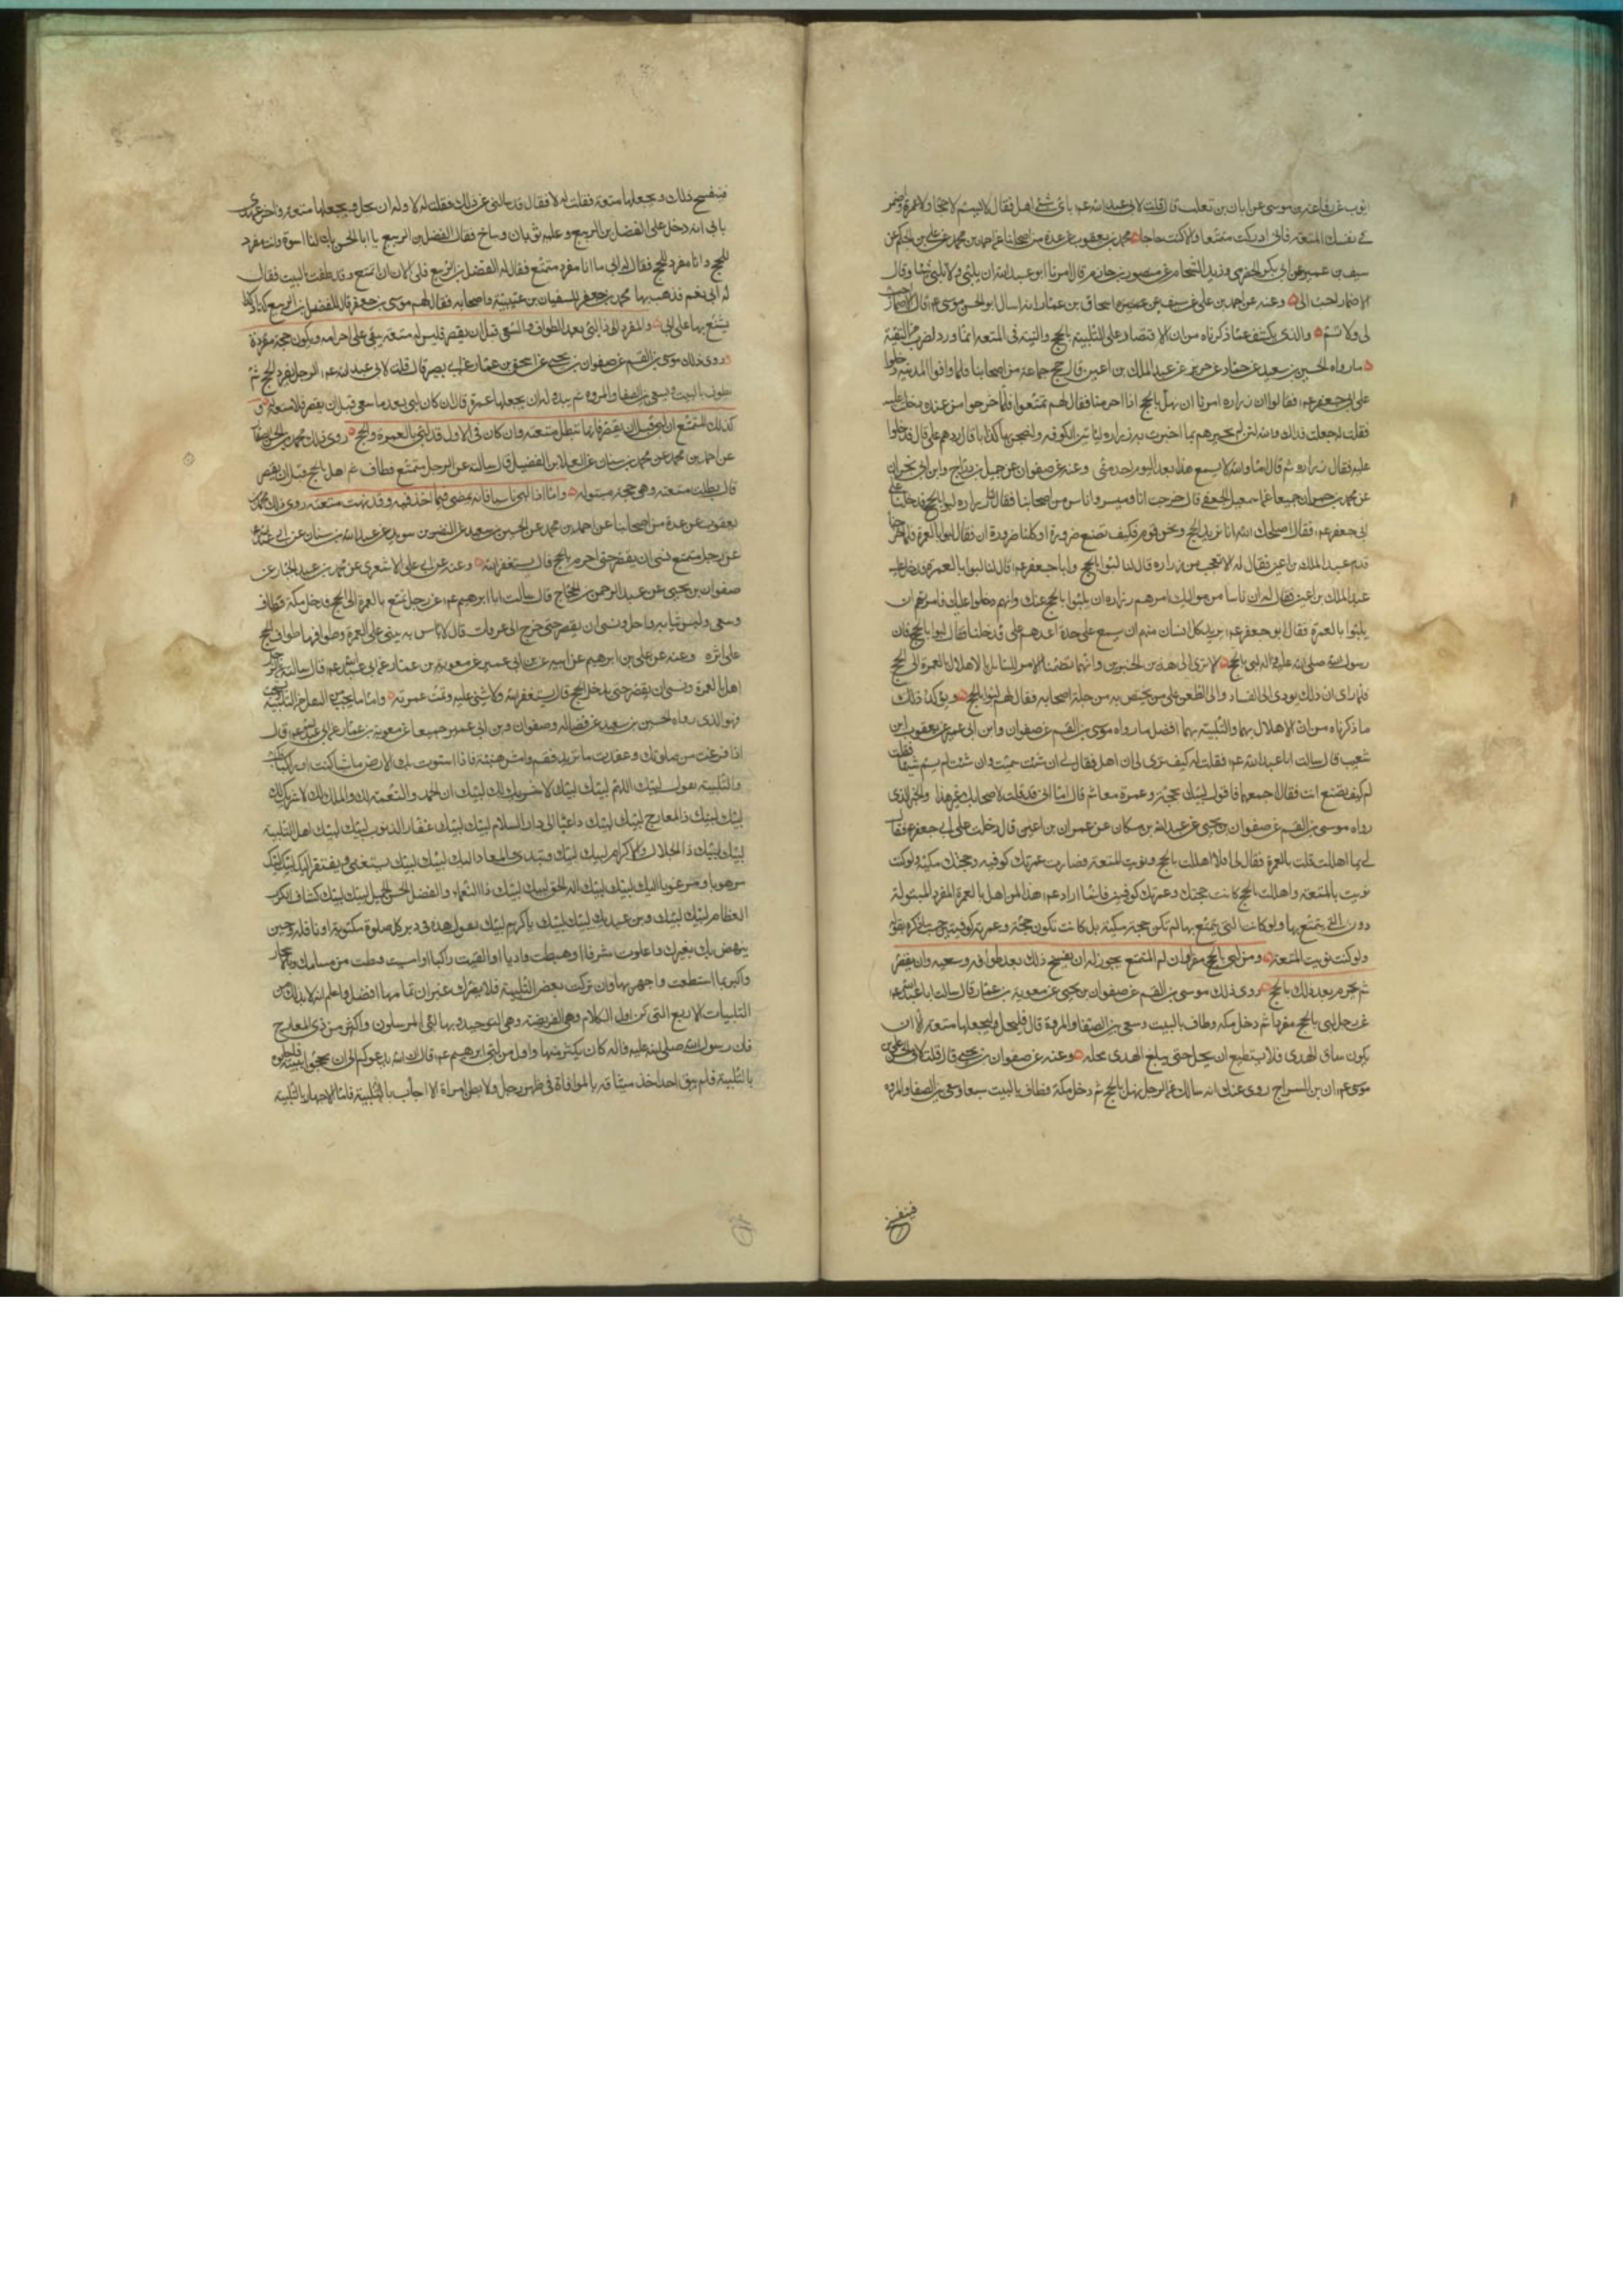 ايوب عن رفاعة بن موسى عن ابان بن تغلب قال قلت لابي عبد الله عم باى شئ اهل فقال لا تسم لا حجا ولا عمرة واضمر
في نفسك المتعة فان ادركت متمتعا والا كنت حاجا محمد بن يعقوب عن عدة من اصحابنا عن احمد بن محمد عن علي بن الحكم عن
سيف بن عميرة عن ابي بكر الحضرمي وزيد الشحام عن منصور بن حازم قال امرنا ابو عبد الله ان يلبي ولا نسمي شيئا وقال
الاضمار احب الي وعنه عن احمد بن علي عن سيف عن اسحاق بن عمار انه سال ابو الحسن موسى عم قال الاضمار احب
الي ولا تسم والذي يكشف عما ذكرناه من ان الاقتصاد على التلبية بالحج والنية في المتعة انما ورد لضرب من التقية
ما رواه الحسين بن سعيد عن حماد عن حريز عن عبد الملك بن اعين قال حج جماعة من اصحابنا فلما وافوا المدينة دخلوا
على ابي جعفر عم فقالوا ان زراره امرنا ان نهل بالحج اذا احرمنا فقال لهم تمتعوا فلما خرجوا من عنده دخلت عليه
فقلت له جعلت فداك والله لئن لم تخبرهم بما اخبرت به زراره لياتين الكوفة وليصبحن بها كذابا قال ردهم علي قال فدخلوا
عليه فقال صدق زراره ثم قال اما والله لا يسمع هذا بعد اليوم احد مني وعنه عن صفوان عن جميل بن دراج وابن ابي نجران
عن محمد بن حمران جميعا عن اسمعيل الجعفي قال خرجت انا وميسر واناس من اصحابنا فقال لنا زراره لبوا بالحج فدخلنا على
ابي جعفر عم فقلنا اصلحك الله انا نريد الحج ونحن قوم صرورة او كلنا صرورة فكيف نصنع فقال لبوا بالعمرة فلما خرجنا
قدم عبد الملك بن اعين فقلت له الا تعجب من زراره قال لنا لبوا بالحج وابا جعفر عم قال لنا لبوا بالعمرة فدخل عليه
عبد الملك بن اعين فقال له ان ناسا من مواليك امرهم زراره ان يلبوا بالحج عنك وانهم دخلوا عليك فامرتهم ان
يلبوا بالعمرة فقال ابو جعفر عم يريد كل انسان منهم ان يسمع على حدة اعدهم علي فدخلنا فقال لبوا بالحج فان
رسول الله صلى الله عليه واله لبى بالحج الا ترى الى هذين الخبرين وانهما تضمنا الامر للسائل بالاهلال بالعمرة الى الحج
فلما راى ان ذلك يودى الى الفساد والى الطعن على من يختص به من جلة اصحابه فقال لهم لبوا بالحج ويؤكد ذلك
ما ذكرناه من ان الاهلال بهما والتلبية بهما افضل ما رواه موسى بن القسم عن صفوان وابن ابي عمير عن يعقوب بن
شعيب قال سالت ابا عبد الله عم فقلت له كيف ترى لي ان اهل فقال لي ان شئت سميت وان شئت لم تسم شيئا فقلت
له كيف تصنع انت فقال اجمعهما فاقول لبيك بحجة وعمرة معا ثم قال اما اني قد قلت لاصحابك غير هذا والخبر الذي
رواه موسى بن القسم عن صفوان بن يحيى عن عبد الله بن مسكان عن حمران بن اعين قال دخلت على ابي جعفر عم فقال
لي بما اهللت قلت بالعمرة فقال لي افلا اهللت بالحج ونويت المتعة فصارت عمرتك كوفية وحجتك مكية ولو كنت
نويت بالمتعة واهللت بالحج كانت حجتك وعمرتك كوفيتين فانما اراد عم هذا لمن اهل بالعمرة المفردة المبتولة
دون التي يتمتع بها ولو كانت التي يتمتع بها لم تكن حجته مكية بل كانت تكون حجته وعمرته كوفيتين حسب ما ذكره بقوله
ولو كنت نويت المتعة ومن لبى بالحج مفردا وان لم المتمتع يجوز له ان يفسخ ذلك بعد طوافه وسعيه وان يقصر
ثم يحرم بعد ذلك بالحج روى ذلك موسى بن القسم عن صفوان بن يحيى عن معوية بن عمار قال سالت ابا عبد الله عم
عن رجل لبى بالحج مفردا ثم دخل مكة وطاف بالبيت وسعى بين الصفا والمروة قال فليحل وليجعلها متعة الا ان
يكون ساق الهدى فلا يستطيع ان يحل حتى يبلغ الهدى محله وعنه عن صفوان بن يحيى قال قلت لابي الحسن علي بن
موسى عم ان بن السراج روى عنك انه سالك عن الرجل يهل بالحج ثم دخل مكة فطاف بالبيت سبعا وسعى بين الصفا والمروة
فينفسخ
فيفسخ ذلك ويجعلها متعة فقلت له لا فقال قد سالني عن ذلك فقلت له لا وله ان يحل ويجعلها متعة واخر عهدي
بابي انه دخل على الفضل بن الربيع وعليه ثوبان وساج فقال الفضل بن الربيع يا ابا الحسن ان لنا بك اسوة وانت مفرد
للحج وانا مفرد للحج فقال له ابي لا ما انا مفرد متمتع فقال له الفضل بن الربيع فلي الان ان اتمتع وقد طفت بالبيت فقال
له ابي نعم فذهب بها محمد بن جعفر الى سفيان بن عيينة واصحابه فقال لهم موسى بن جعفر قال للفضل بن الربيع كذا وكذا
يشنع بها على ابي والمفرد اذا لبى بعد الطواف والسعي قبل ان يقصر فليس له متعة يبقى على احرامه ويكون حجته مفردة
روى ذلك موسى بن القسم عن صفوان بن يحيى عن اسحق بن عمار عن ابي بصير قال قلت لابي عبد الله عم الرجل يفرد الحج ثم
يطوف بالبيت ويسعى بين الصفا والمروه ثم يبدو له ان يجعلها عمرة قال ان كان لبى بعد ما سعى قبل ان يقصر فلا متعة له و
كذلك المتمتع ان لبى قبل ان يقصر فانها تبطل متعته وان كان في الاول قد لبى بالعمرة والحج روى ذلك محمد بن الحسن الصفار
عن احمد بن محمد عن محمد بن سنان عن العلا بن الفضيل قال سالته عن الرجل متمتع فطاف ثم اهل بالحج قبل ان يقصر
قال بطلت متعته وهي حجة مبتولة واما اذا لبى ناسيا فانه يمضي فيما اخذ فيه وقد تمت متعته روى ذلك محمد بن
يعقوب عن عدة من اصحابنا عن احمد بن محمد عن الحسين بن سعيد عن النضر بن سويد عن عبد الله بن سنان عن ابي عبد الله عم
عن رجل متمتع نسي ان يقصر حتى احرم بالحج قال يستغفر الله وعنه عن ابي علي الاشعري عن محمد بن عبد الجبار عن
صفوان بن يحيى عن عبد الرحمن بن الحجاج قال سالت ابا ابرهيم عم عن رجل تمتع بالعمرة الى الحج فدخل مكة فطاف
وسعى ولبس ثيابه واحل ونسي ان يقصر حتى خرج الى عرفات قال لا باس به يبني على العمرة وطوافها وطواف الحج
على اثره وعنه عن علي بن ابرهيم عن ابيه عن بن ابي عمير عن معوية بن عمار عن ابي عبد الله عم قال سالته عن رجل
اهل بالعمرة ونسي ان يقصر حتى يدخل الحج قال يستغفر الله ولا شئ عليه وتمت عمرته واما ما يجب من التلبية
فهو الذي رواه الحسين بن سعيد عن فضالة وصفوان وبن ابي عمير جميعا عن معوية بن عمار عن ابي عبد الله عم قال
اذا فرغت من صلوتك وعقدت ما تريد فقم وامش هنيئة فاذا استوت بك الارض ماشيا كنت او راكبا فلب
والتلبية تقول لبيك اللهم لبيك لبيك لا شريك لك لبيك ان الحمد والنعمة لك والملك لك لا شريك لك
لبيك لبيك ذا المعارج لبيك لبيك داعيا الى دار السلام لبيك لبيك غفار الذنوب لبيك لبيك اهل التلبية
لبيك لبيك ذا الجلال والاكرام لبيك لبيك تبدئ والمعاد اليك لبيك لبيك تستغني ويفتقر اليك لبيك لبيك
مرهوبا ومرغوبا اليك لبيك لبيك اله الحق لبيك لبيك ذا النعماء والفضل الحسن الجميل لبيك لبيك كشاف الكرب
العظام لبيك لبيك وبن عبديك لبيك لبيك يا كريم لبيك تقول هذه في دبر كل صلوة مكتوبة او نافلة وحين
ينهض بك بعيرك واذا علوت شرفا او هبطت واديا او لقيت راكبا او استيقظت من منامك وبالاسحار
واكثر ما استطعت واجهر بها وان تركت بعض التلبية فلا يضرك غير ان تمامها افضل واعلم انه لا بد لك من
التلبيات الاربع التي كن اول الكلام وهي الفريضة وهي التوحيد وبها لبى المرسلون واكثر من ذي المعارج
فان رسول الله صلى الله عليه واله كان يكثر منها واول من لبى ابرهيم عم قال ان الله يدعوكم الى ان تحجوا بيته فاجابوه
بالتلبية فلم يبق احد اخذ ميثاقه بالموافاة في ظهر رجل ولا بطن امراة الا اجاب بالتلبية فاما الاجهار بالتلبية